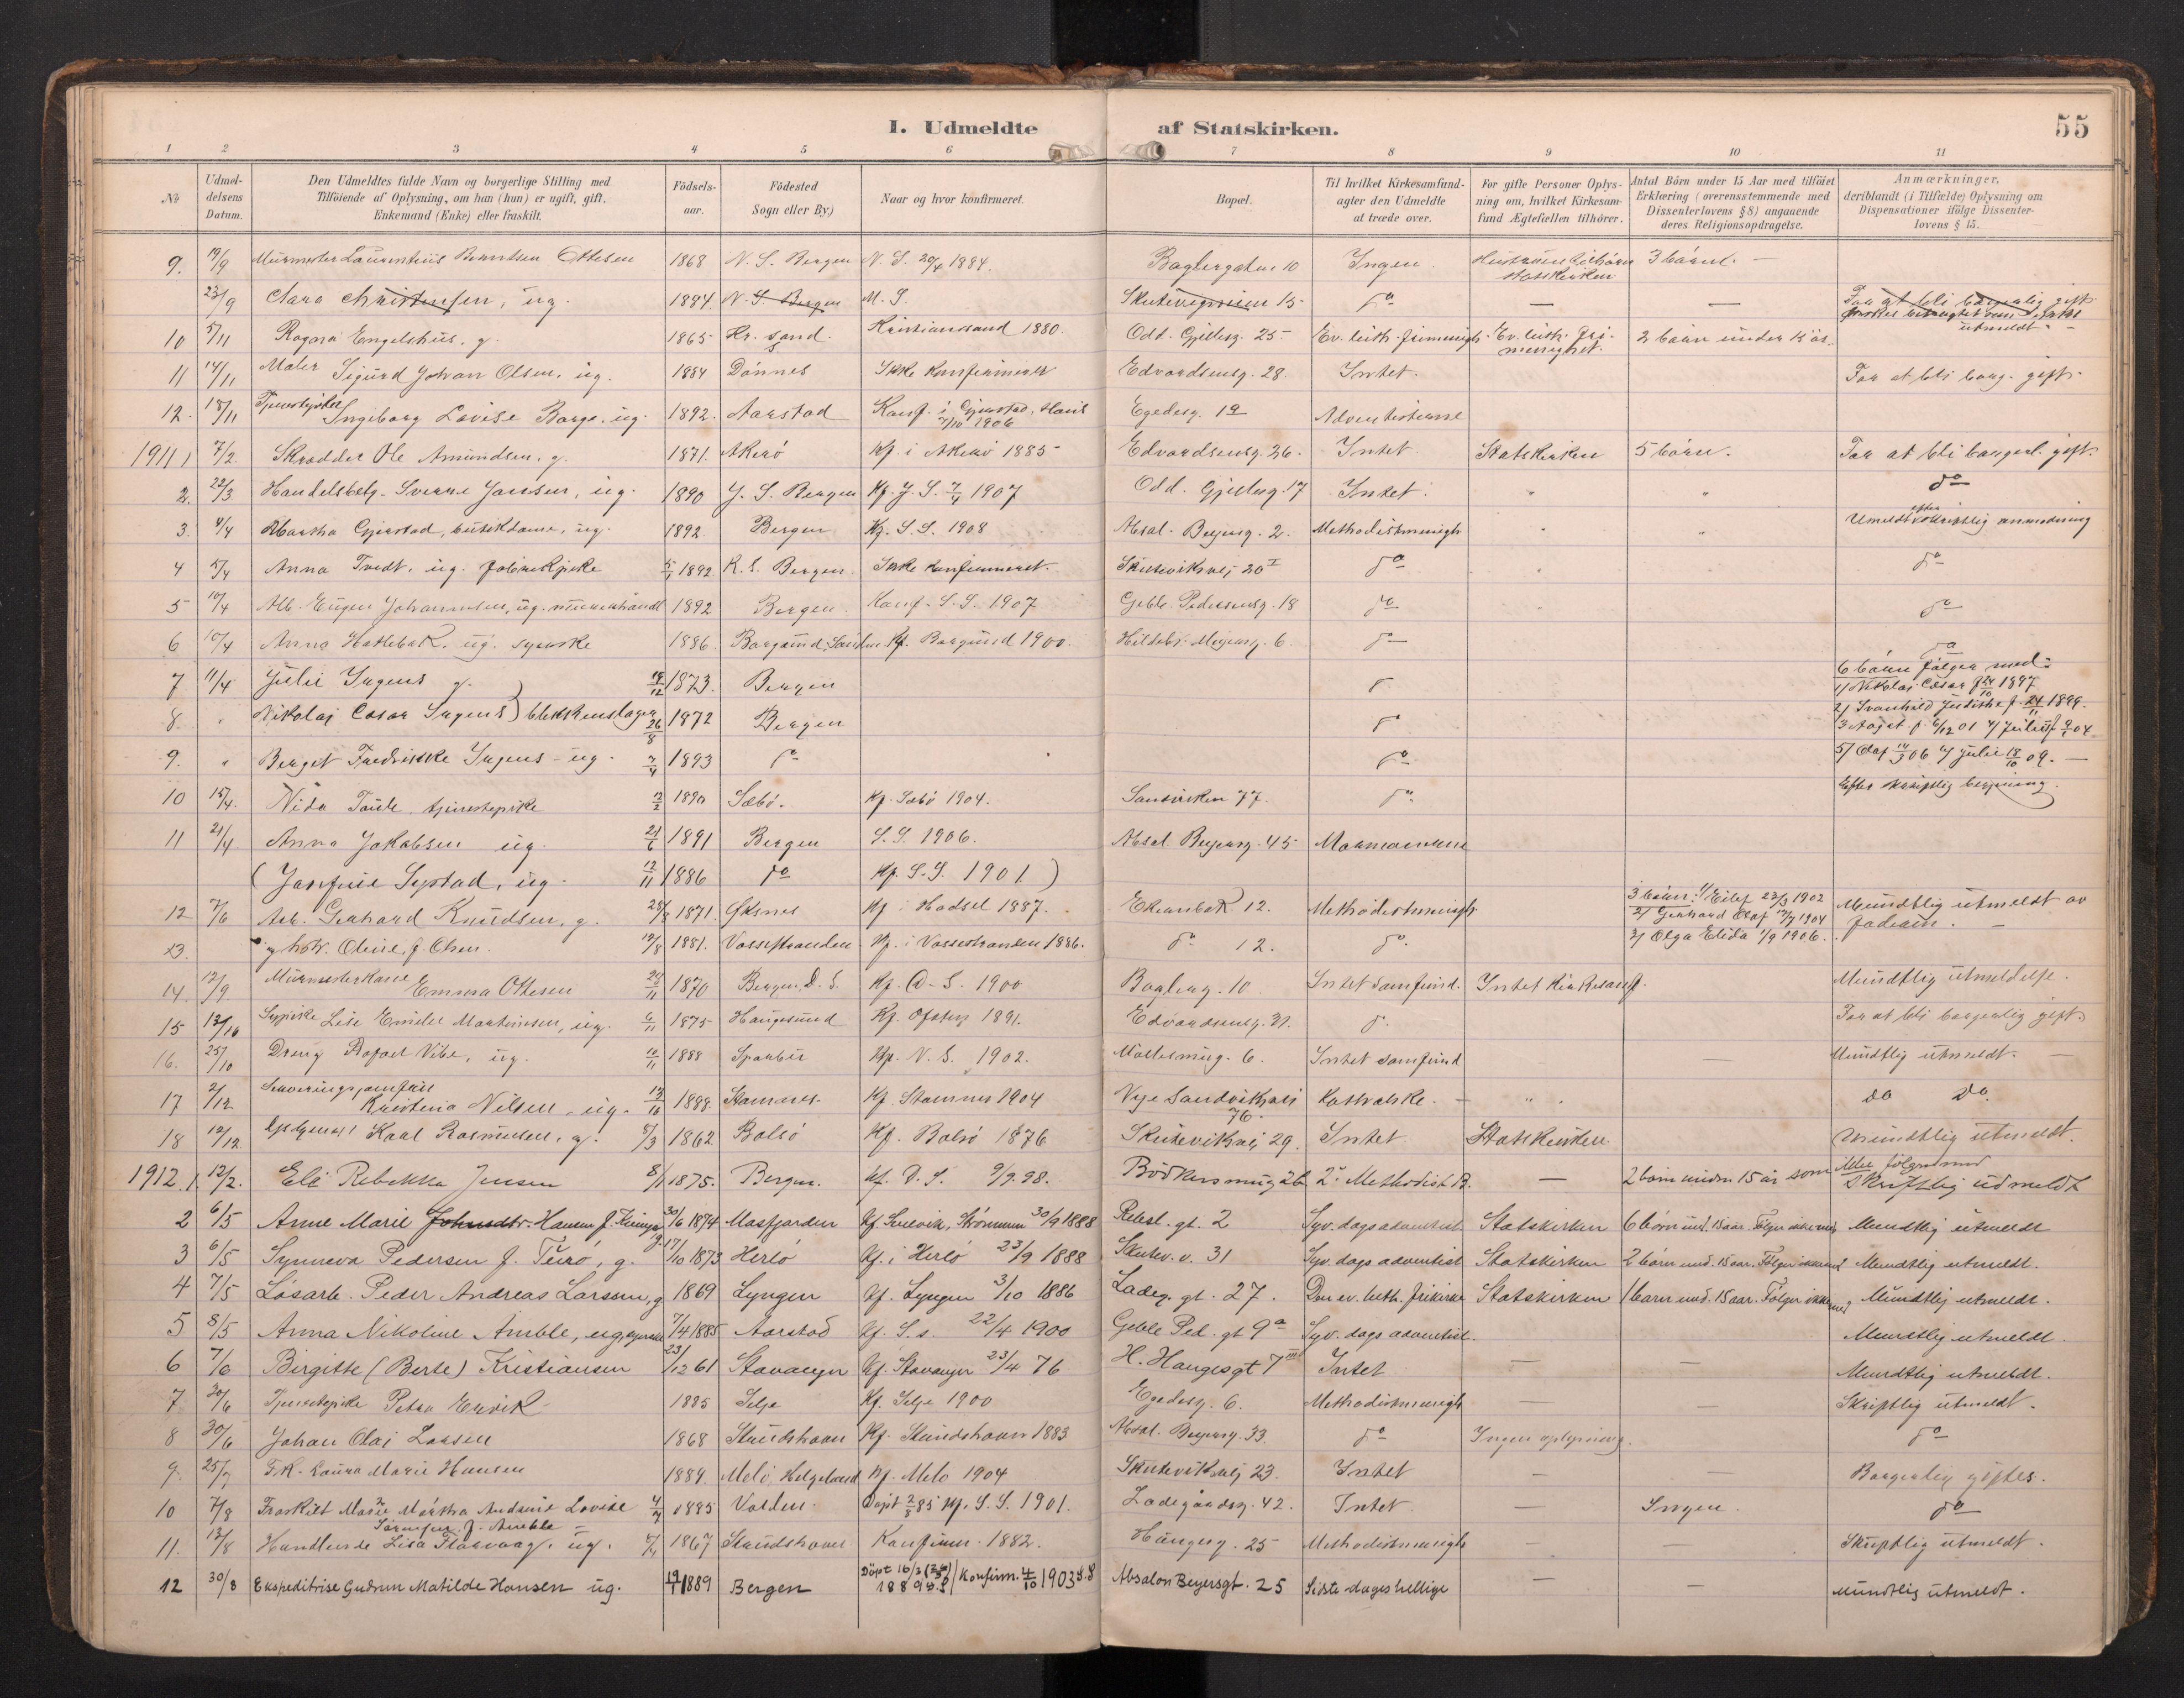 I. Udmeldte af Statskirken.
55
1 2 3 4 5 6 7 8 9 10 11
No
Udmeldelsens Datum.
Den Udmeldtes fulde Navn og borgerlige Stilling med Tilføiende af Oplysning, om han (hun) er ugift, gift, Enkemand (Enke) eller fraskilt.
Fødselsaar.
Fødested Sogn eller By.)
Naar og hvor konfirmeret.
Bopæl.
Til hvilket Kirkesamfundagter den Udmeldte at træde over.
For gifte Personer Oplysning om, hvilket Kirkesamfund Ægtefællen tilhører.
Antal Börn under 15 Aar med tilföiet Erklæring (overensstemmende med Dissenterlovens § 8) angaaende deres Religionsopdragelse.
Anmærkninger, deriblandt (i Tilfælde) Oplysning om Dispensationer ifölge Dissenterlovens § 15.
9. 19/9 Murmester Laurentius Berntsen Ottesen 1868 N. S. Bergen N. S. 20/4 1884. Baglergaten 10 Ingen Hustruen tilhører Statskirken 3 børn. —
23/9 Clara Christensen, ug. 1884. N. S. Bergen Skutevigsveien 15 do — —
10 5/11 Ragna Engelshus, g. 1865 Kr. sand. Kristianssand 1880. Odd. Gjellesg. 25 Ev. luth. frimenigh. Ev. luth. frimenighet. 2 børn under 15 år.
11 14/11 Maler Sigurd Johan Olsen, ug. 1884 Dønnes Ikke konfirmeret Edvardsensg. 28. Intet. For at bli borg. gift.
12. 18/11 Tjenestepike Ingeborg Lovise Borge. ug. 1892. Aarstad Konf. i 7/10 1906 Egedesg. 1a Adventisterne
1911 1 7/2. Skrædder Ole Amundsen, g. 1871. Akerø Kf. i Akerø 1885 Edvardsensg. 26. Intet Statskirken 5 børn. For at bli borgerl. gift.
2. 22/3 Handelsbetj. Sverre Jansen, ug. 1890 J. S. Bergen Kf. J. S. 7/4 1907 Odd. Gjellesg. 17 Intet. " " do
3. 4/4 Martha Gjerstad, butikdame, ug. 1892 Bergen Kf. S. S. 1908 Absal. Beyersg. 2. Methodistmenigh. " " Utmeldt efter skriftlig anmodning
4 5/4 Anna Tvedt, ug. fabrikpike 5/1 1892 K. S. Bergen Ikke konfirmeret. Skuteviksvej 20 I do " do
5 10/4 Alb. Eugen Johannesen, ug. 1892 Bergen. Konf. S. S. 1907 Geble Pederssensg. 18 do " do
6 10/4 Anna Hatlebak. ug. syerske 1886. Borgund, Kf. Borgund 1900. Hildebr. Meyersg. 6. do do
7 11/4 Julie Irgens g. 1873. Bergen do 6 børn følger med:
1/ Nikolai Cæsar 1897
8. " Nikolai Cæsar Irgens blikkenslager 26/8 1872 Bergen do 2/ Svanhild f. 24/11 1899.
9. " Berget Fredrikke Irgens ug. 7/4 1893 do do 5/ Olaf 06 6/ Julie 18/10 09. —
10 15/4. Nida tjenestepike 2/2 1890 Sæbø. Kf. Sæbø 1904. Sandviken 77. do Efter skriftlig begjæring.
11 21/4 Anna Jakobsen ug. 1891 Bergen S. S. 1906. Absal. Beyersg. 45 Mormonerne
( Systad, ug. 12/11 1886 do Kf. S. S. 1901. )
12 7/6 Arb. Gerhard Knudsen, g. 1871. Øksnes Kf i Hadsel 1887. Ekrenbak. 12. Methodistmenigh. 3 børn: 1/ Eilef 23/3 1902 2/ Gerhard Olaf 17/7 1904 3/ Olga Elida 1/9 1906. Mundtlig utmeldt av faderen. —
13. g. hstr. Oline, f. Olsen. 19/8 1881. Vossestranden Kf. i Vossestranden 1886. do 12. do.
14. 12/9 Murmesterkone Emma Ottesen 1870 Bergen, D. S. Kf. D. S. 1900 Baglerg. 10 Intet samfund. Intet kirkesamf. Mundtlig utmeldelse.
15 13/10 Sypike Lise Emilie Martinsen, ug. 6/11 1875 Haugesund Kf. 1891. Edvardsensg. 31. do. For at bli borgerlig gift.
16. 25/10 Dreng Rafael Vibe, ug. 10/11 1888 Sparbu Kf. N. S. 1902. Møllesmug. 6. Intet samfund — Mundtlig utmeldt. —
17 2/12 Kristina Nilsen, ug. 1888. Stamnes. Kf. Stamnes 1904 Nye Sandviksvei 76. Katholske. — " " do do
18 12/12. Karl Rasmussen, g. 8/3 1862 Bolsø Kf. Bolsø 1876 Skuteviksvej 29. Intet Statskirken Mundtlig utmeldt.
1912. 1. 12/2. Eli Rebekka Jensen 8/1 1875. Bergen. Kf. D. S. 9/9. 98. Bödkersmug 26 2. Methodist K. — 2 børn under 15 år som ikke følger med Skriftlig udmeldt
2 6/5 Anne Marie Hansen 30/6 1874 Masfjorden 30/9 1888 Rebsl. gt. 2 Syv. dags adventist Statskirken 6 børn und. 15 aar. Følger ikke med Mundtlig utmeldt
3 6/5 Synneva Pedersen f. Teirø, g. 17/10 1873 Herlö Kf. i Herlö 23/9 1888 Skutev. v. 31 Syv. dags adventist Statskirken 2 børn und. 15 aar. Følger ikke med Mundtlig utmeldt.
4 7/5 Løsarb. Peder Andreas Larsen, g 1869 Lyngen Kf. Lyngen 3/10 1886 Ladeg. gt. 27. Den ev. luth. frikirke Statskirken 1 barn und. 15 aar. Følger ikke med Mundtlig utmeldt.
5 8/5 Anna Nikoline Amble, ug, syerske 7/4 1885 Aarstad Kf. S. s. 22/4 1900 Geble Ped. gt 9a Syv. dags adventist. Mundtlig utmeldt.
6 7/6 Birgitte (Berte) Kristiansen 23/12 61 Stavanger Kf. Stavanger 23/4 76 H. Haugesgt 7 III Intet — — Mundtlig utmeldt.
7 20/6 Tjenestepike Petra Ervik 1885 Selje Kf. Selje 1900 Egedesg. 6. Methodistmenigh — — Skriftlig utmeldt.
8 20/6 Johan Olai Larsen 1868 Kf. 1883 Absal. Beyersg. 33. do Ingen oplysning. do
9. 25/7 Frk. Laura Marie Hansen 1889. Melö, Helgeland Kf. Melö 1904 Skuteviksvej 23. Intet — — Borgerlig giftes.
10 7/8 Fraskilt Marie Martha Andsine Lovise f. Amble 4/4 1885 Volden. Døpt 2/8 85 Kf. S. S. 1901. Ladegårdsg. 42. Intet — Ingen. do
11. 12/8 Handlende Lisa ug. 1867 Konfirm. 1882. Haugesg. 25 Methodistmenigh — — Skriftlig utmeldt.
12 30/8 Ekspeditrise Gudrun Matilde Hansen ug. 19/1 1889 Bergen Döpt 16/3 1889 Konfirm. 4/10 1903 Absalon Beyersgt. 25 Sidste dages hellige — — Mundtlig utmeldt.